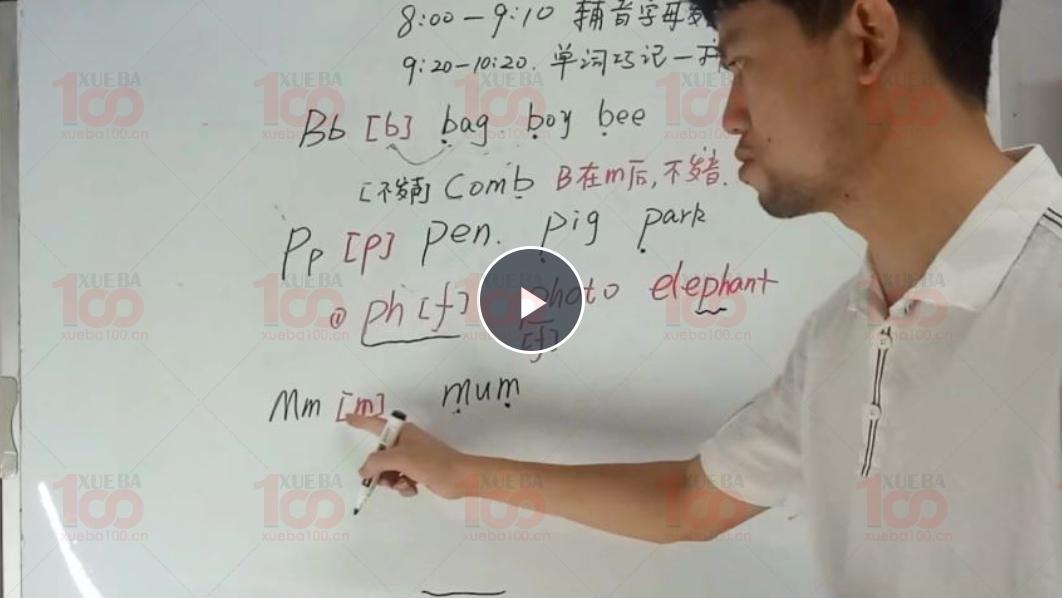 8:00-9:10 辅音字母发
9:20-10:20. 单词巧记一
Bb [b] bag. boy bee
[不发声] Comb B在m后,不发音.
Pp [p] pen. pig park
① ph [f] photo elephant
[f]
Mm [m] mum
100 XUEBA
xueba100.cn